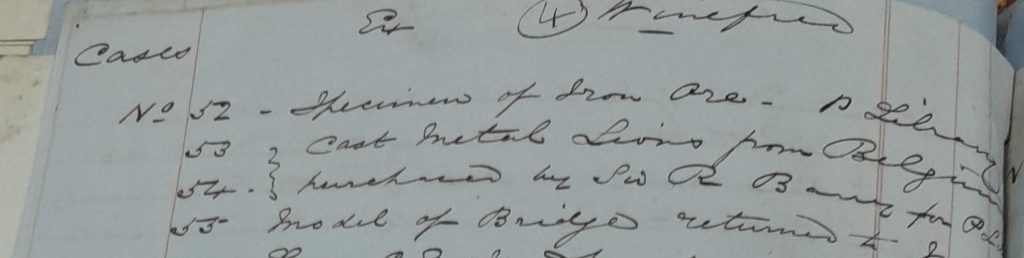 Ex (4) Winefred
Cases
No 52 - Specimen of Iron Ore - P Library
53 } Cast Metal Lions from Belgium
54 . } purchased by Sir R Barry for P L
55 Model of Bridge returned to